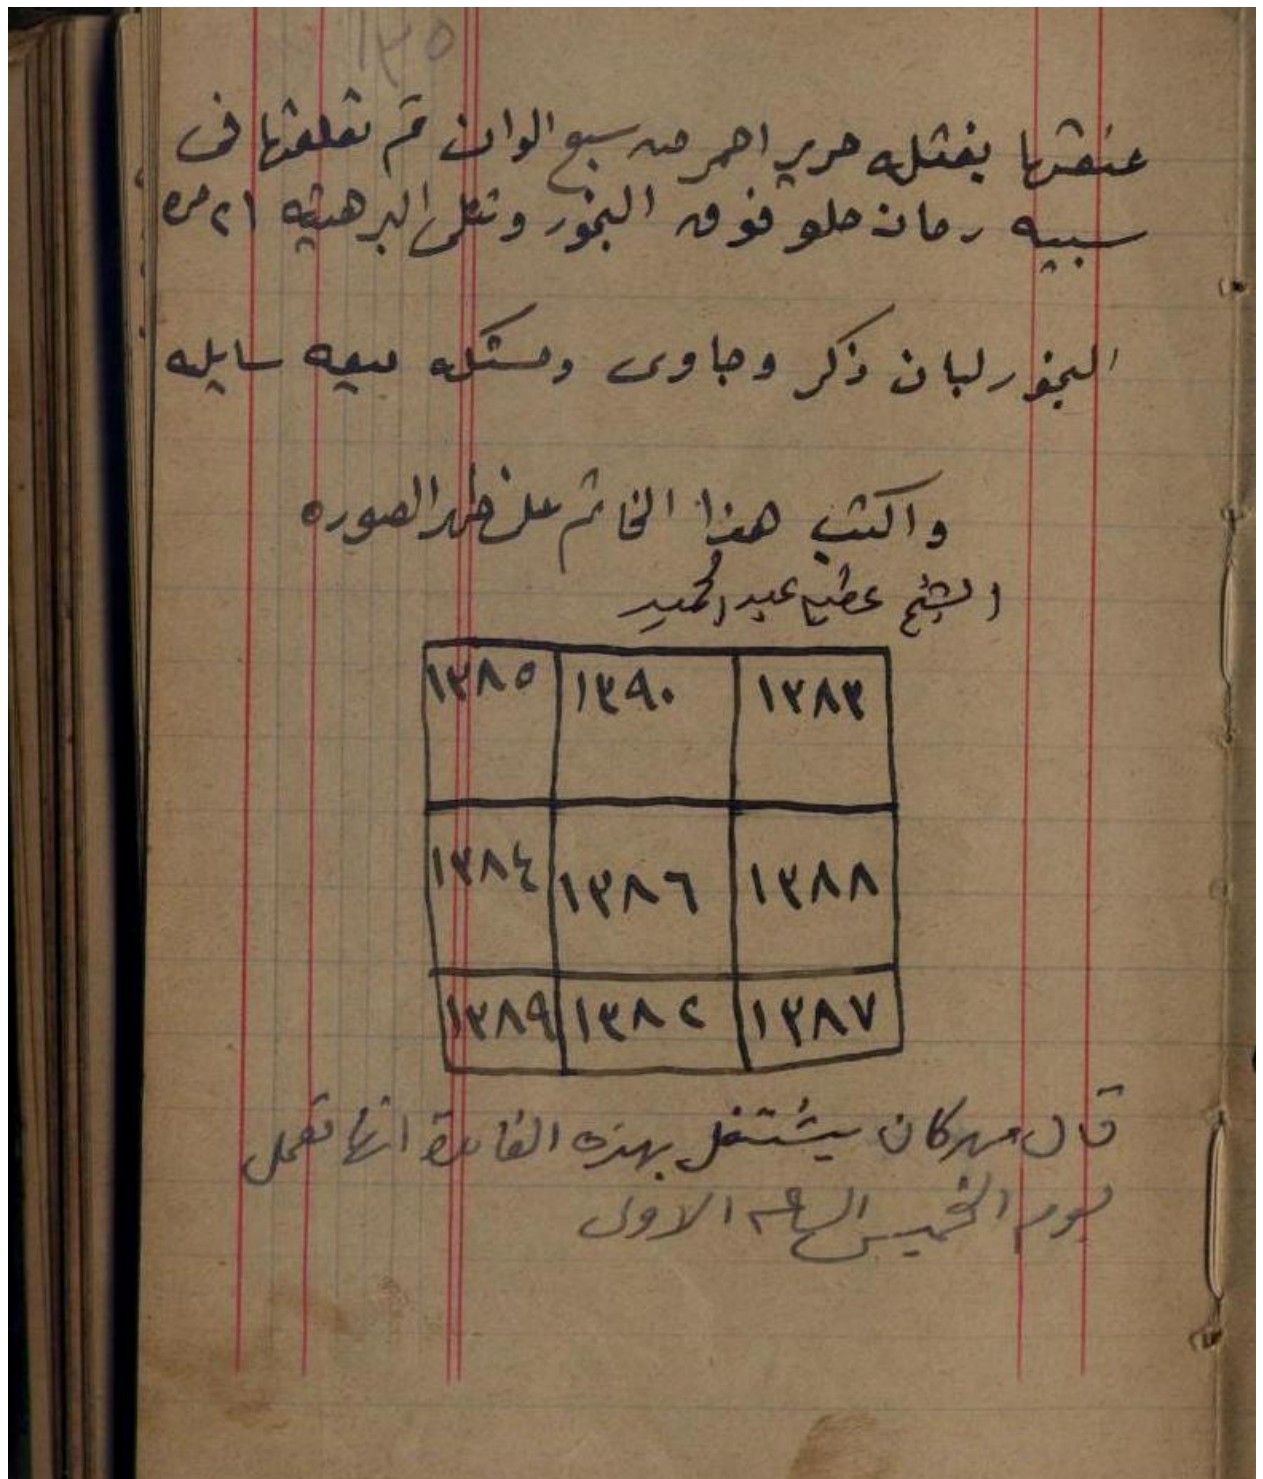 ١٣٥
عنقها بفتله حرير احمر من سبع الوان ثم تعلقها فى
سيبه رمان حلو فوق البخور وتتلى البرهتيه ٢١ مره
البخور لبان ذكر وجاوى ومستكه ميعه سايله
واكتب هذا الخاتم على ظهر الصوره
الشيخ عطيه عبد الحميد
١٣٨٣ ١٣٩٠ ١٣٨٥
١٣٨٨ ١٣٨٦ ١٣٨٤
١٣٨٧ ١٣٨٢ ١٣٨٩
قال من كان يشتغل بهذه الفائدة انها تعمل
يوم الخميس الساعه الاول